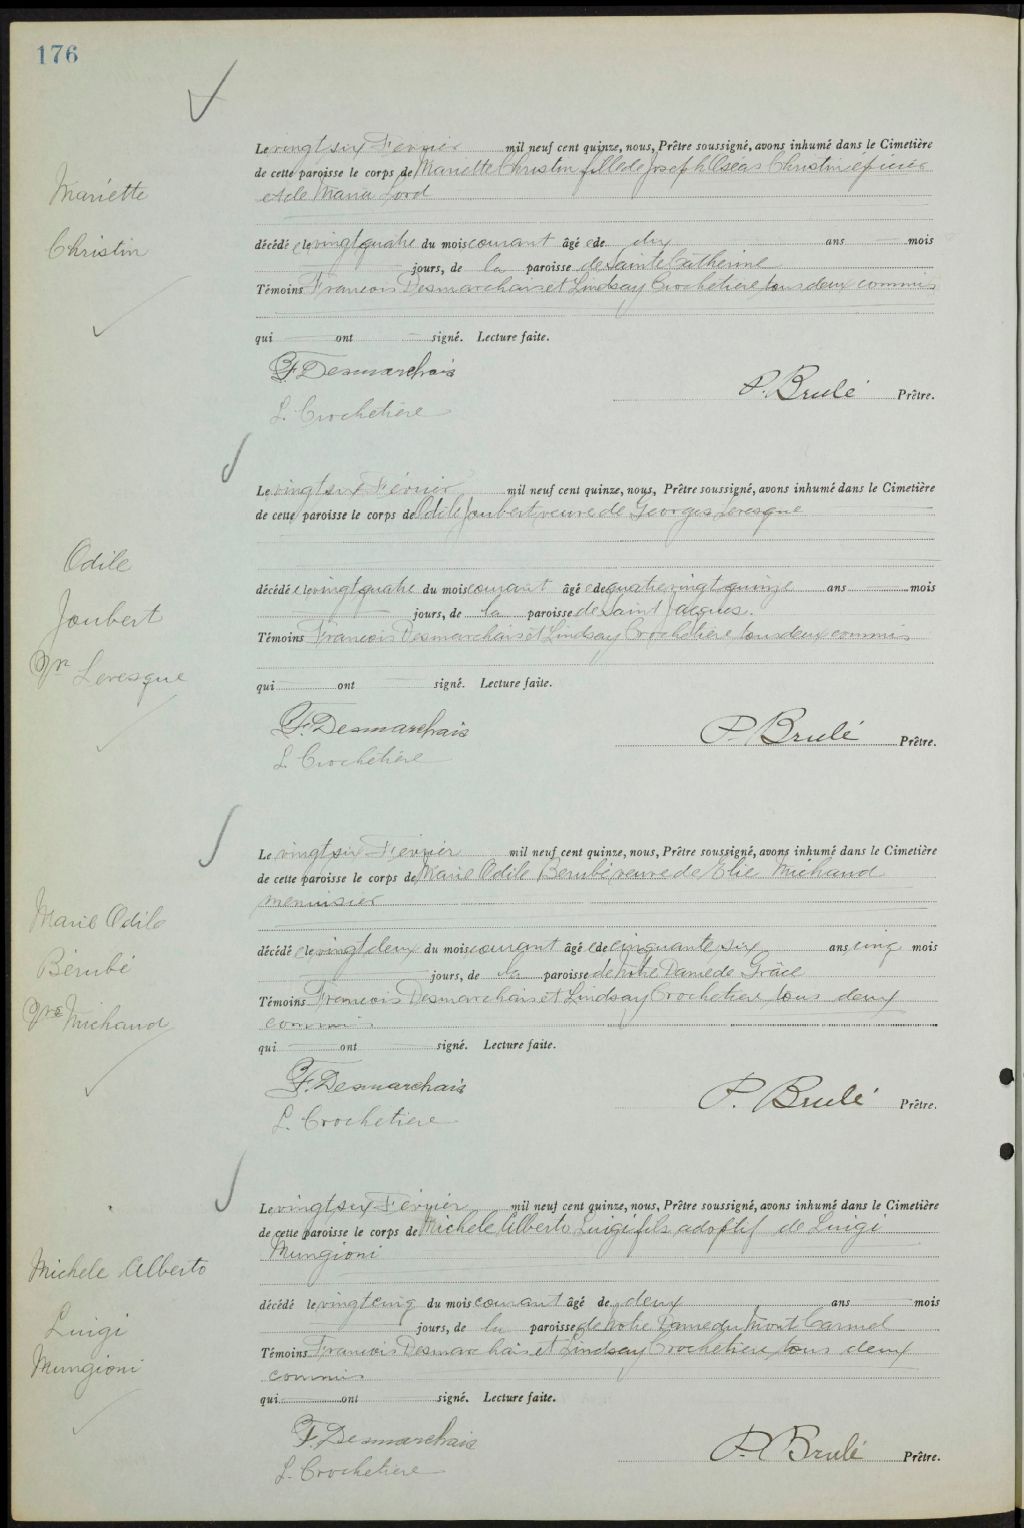 176
Mariette
Christin
Le vingt six Fevrier mil neuf cent quinze, nous, Prêtre soussigné, avons inhumé dans le Cimetière
de cette paroisse le corps de Mariette Christin fille de Joseph Oséas Christin épicier
et de Maria Lord
décédée le vingt quatre du mois courant âgée de dix ans mois
jours, de la paroisse de Sainte Catherine
Témoins Francois Desmarchais et Lindsay Crochetiere, tous deux commis
qui ont signé. Lecture faite.
F. Desmarchais
P. Brulé Prêtre.
L. Crochetière
Odile
Joubert
Vve Levesque
Le vingt six Février mil neuf cent quinze, nous, Prêtre soussigné, avons inhumé dans le Cimetière
de cette paroisse le corps de Odile Joubert, veuve de Georges Levesque
décédée le vingt quatre du mois courant âgée de quatre vingt quinze ans mois
jours, de la paroisse de Saint Jacques.
Témoins Francois Desmarchais et Lindsay Crochetière, tous deux commis
qui ont signé. Lecture faite.
F. Desmarchais
P. Brulé Prêtre.
L. Crochetière
Marie Odile
Bérubé
Vve Michaud
Le vingt six Février mil neuf cent quinze, nous, Prêtre soussigné, avons inhumé dans le Cimetière
de cette paroisse le corps de Marie Odile Berubé, veuve de Elie Michaud
menuisier
décédée le vingt deux du mois courant âgée de cinquante six ans, cinq mois
jours, de la paroisse de Notre Dame de Grâce
Témoins Francois Desmarchais et Lindsay Crochetiere, tous deux
commis
qui ont signé. Lecture faite.
F. Desmarchais
P. Brulé Prêtre.
L. Crochetiere
Michele Alberto
Luigi
Mungioni
Le vingt six Février mil neuf cent quinze, nous, Prêtre soussigné, avons inhumé dans le Cimetière
de cette paroisse le corps de Michele Alberto Luigi fils adoptif de Luigi
Mungioni
décédé le vingt cinq du mois courant âgé de deux ans mois
jours, de la paroisse de Notre Dame du Mont Carmel
Témoins Francois Desmarchais et Lindsay Crochetiere, tous deux
commis
qui ont signé. Lecture faite.
F. Desmarchais
P. Brulé Prêtre.
L. Crochetiere